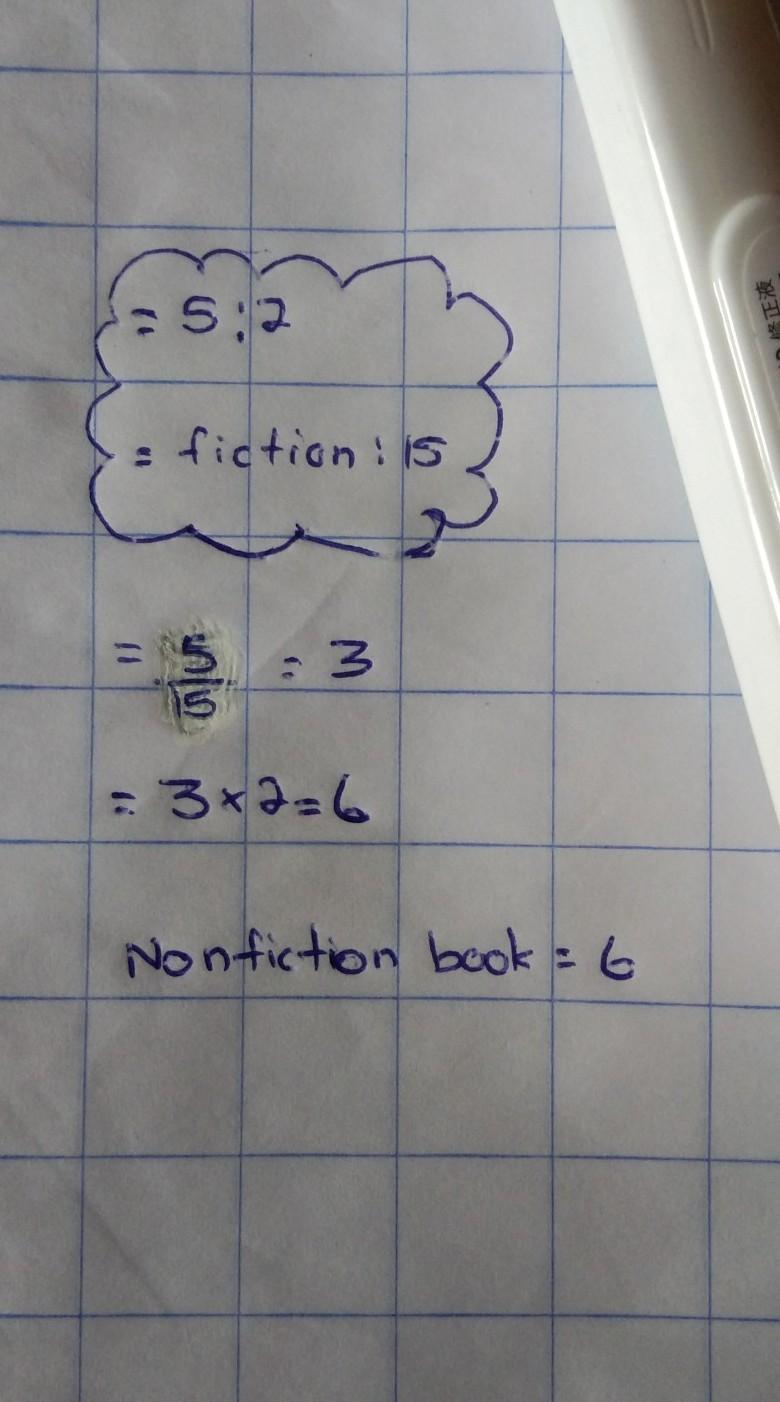 = 5:2
= fiction : 15
= 5/15 = 3
= 3 × 2 = 6
Nonfiction book = 6
修正液